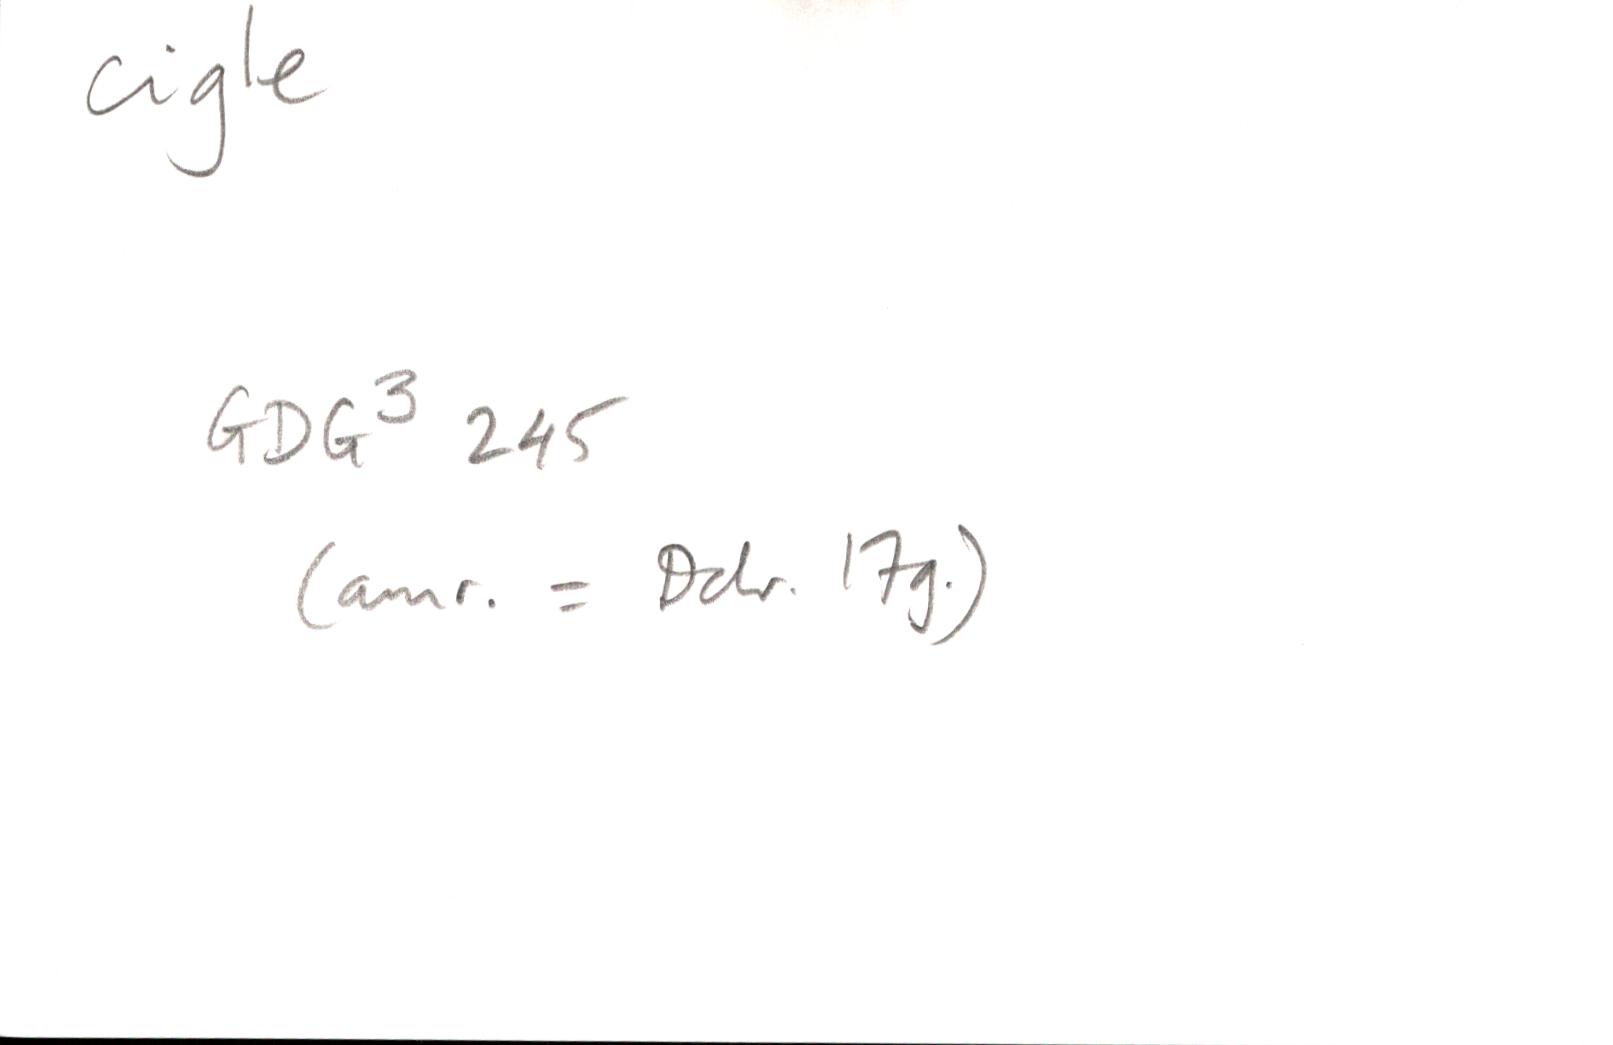 cigle
GDG³ 245
(amr. = Ddr. 17g.)